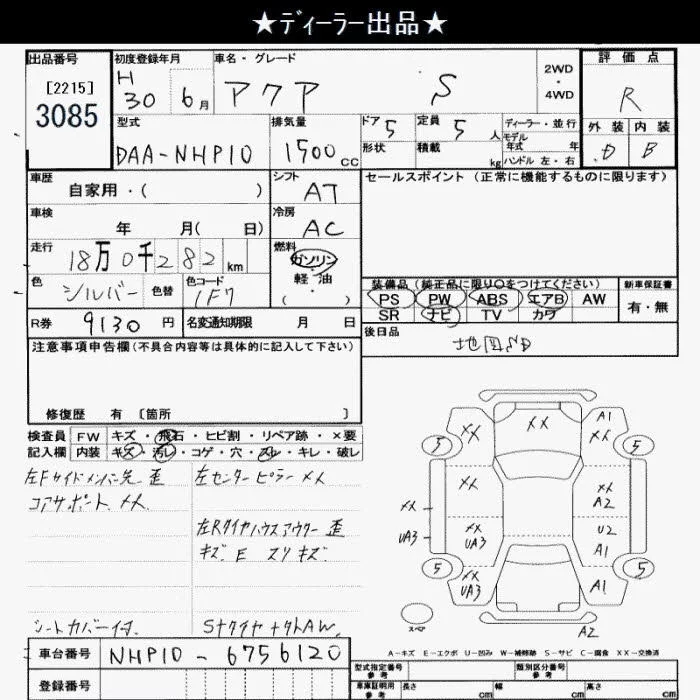 ★ディーラー出品★
出品番号 [2215] 3085
初度登録年月 H 30 6月
車名・グレード アクア S
2WD・4WD
評価点 R
外装 D 内装 B
型式 DAA-NHP10
排気量 1500cc
ドア 5 定員 5人
形状 積載 kg
ディーラー・並行
モデル年式 年
ハンドル 左・右
車歴 自家用・( )
シフト AT
セールスポイント (正常に機能するものに限ります)
車検 年 月( 日)
冷房 AC
走行 18万0千282km
燃料 ガソリン・軽油・( )
色 シルバー 色替 色コード 1F7
装備品 (純正品に限り○をつけてください) 新車保証書
PS PW ABS エアB AW 有・無
SR ナビ TV カワ
R券 9130円 名変通知期限 月 日
後日品 地図SD
注意事項申告欄(不具合内容等は具体的に記入して下さい)
修復歴 有 〔箇所 〕
検査員 FW キズ・飛石・ヒビ割・リペア跡・×要
記入欄 内装 キズ・汚レ・コゲ・穴・スレ・キレ・破レ
左Fサイドメンバー先 歪 左センターピラー XX
コアサポート XX
左Rタイヤハウスアウター 歪
キズ E スリキズ
シートカバー付 SナタイヤナットAW
XX
A1
XX
XX
5
5
XX
XX
A2
XX
UA3
XX
UA3
U2
A1
5
XX
UA3
A1
5
スペア
A2
A-キズ E-エクボ U-凹み W-補修跡 S-サビ C-腐食 XX-交換済
車台番号 NHP10-6756120
型式指定番号 参考 類別区分番号 参考
登録番号
車庫証明用 参考 長さ cm 幅 cm 高さ cm